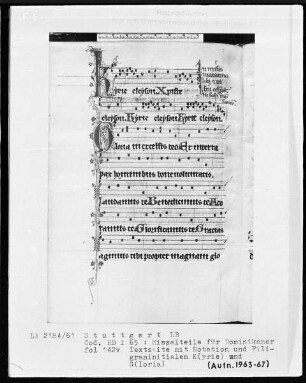 Kyrie eleyson. Xpiste
eleyson. Kyrie eleyson Kyrie eleyson.
Gloria in excelsis deo Et in terra
pax hominibus bone voluntatis.
Laudamus te Benedicimus te Ado
ramus te Glorificamus te Gracias
agimus tibi propter magnam glo
LA 2184/61 Stuttgart LB
Cod. HB I 65 : Missalteile für Dominikaner
fol 142v Textseite mit Notation und Fili-
graninitialen K(yrie) und
G(loria) (Aufn. 1963-67)